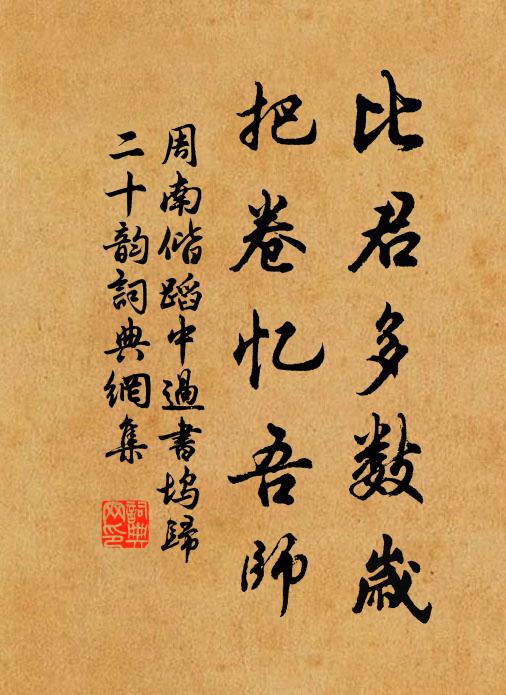 比君多数歲
把卷忆吾師
周南偕蹈中過書塢歸
二十韵詞典網集
詞典網印